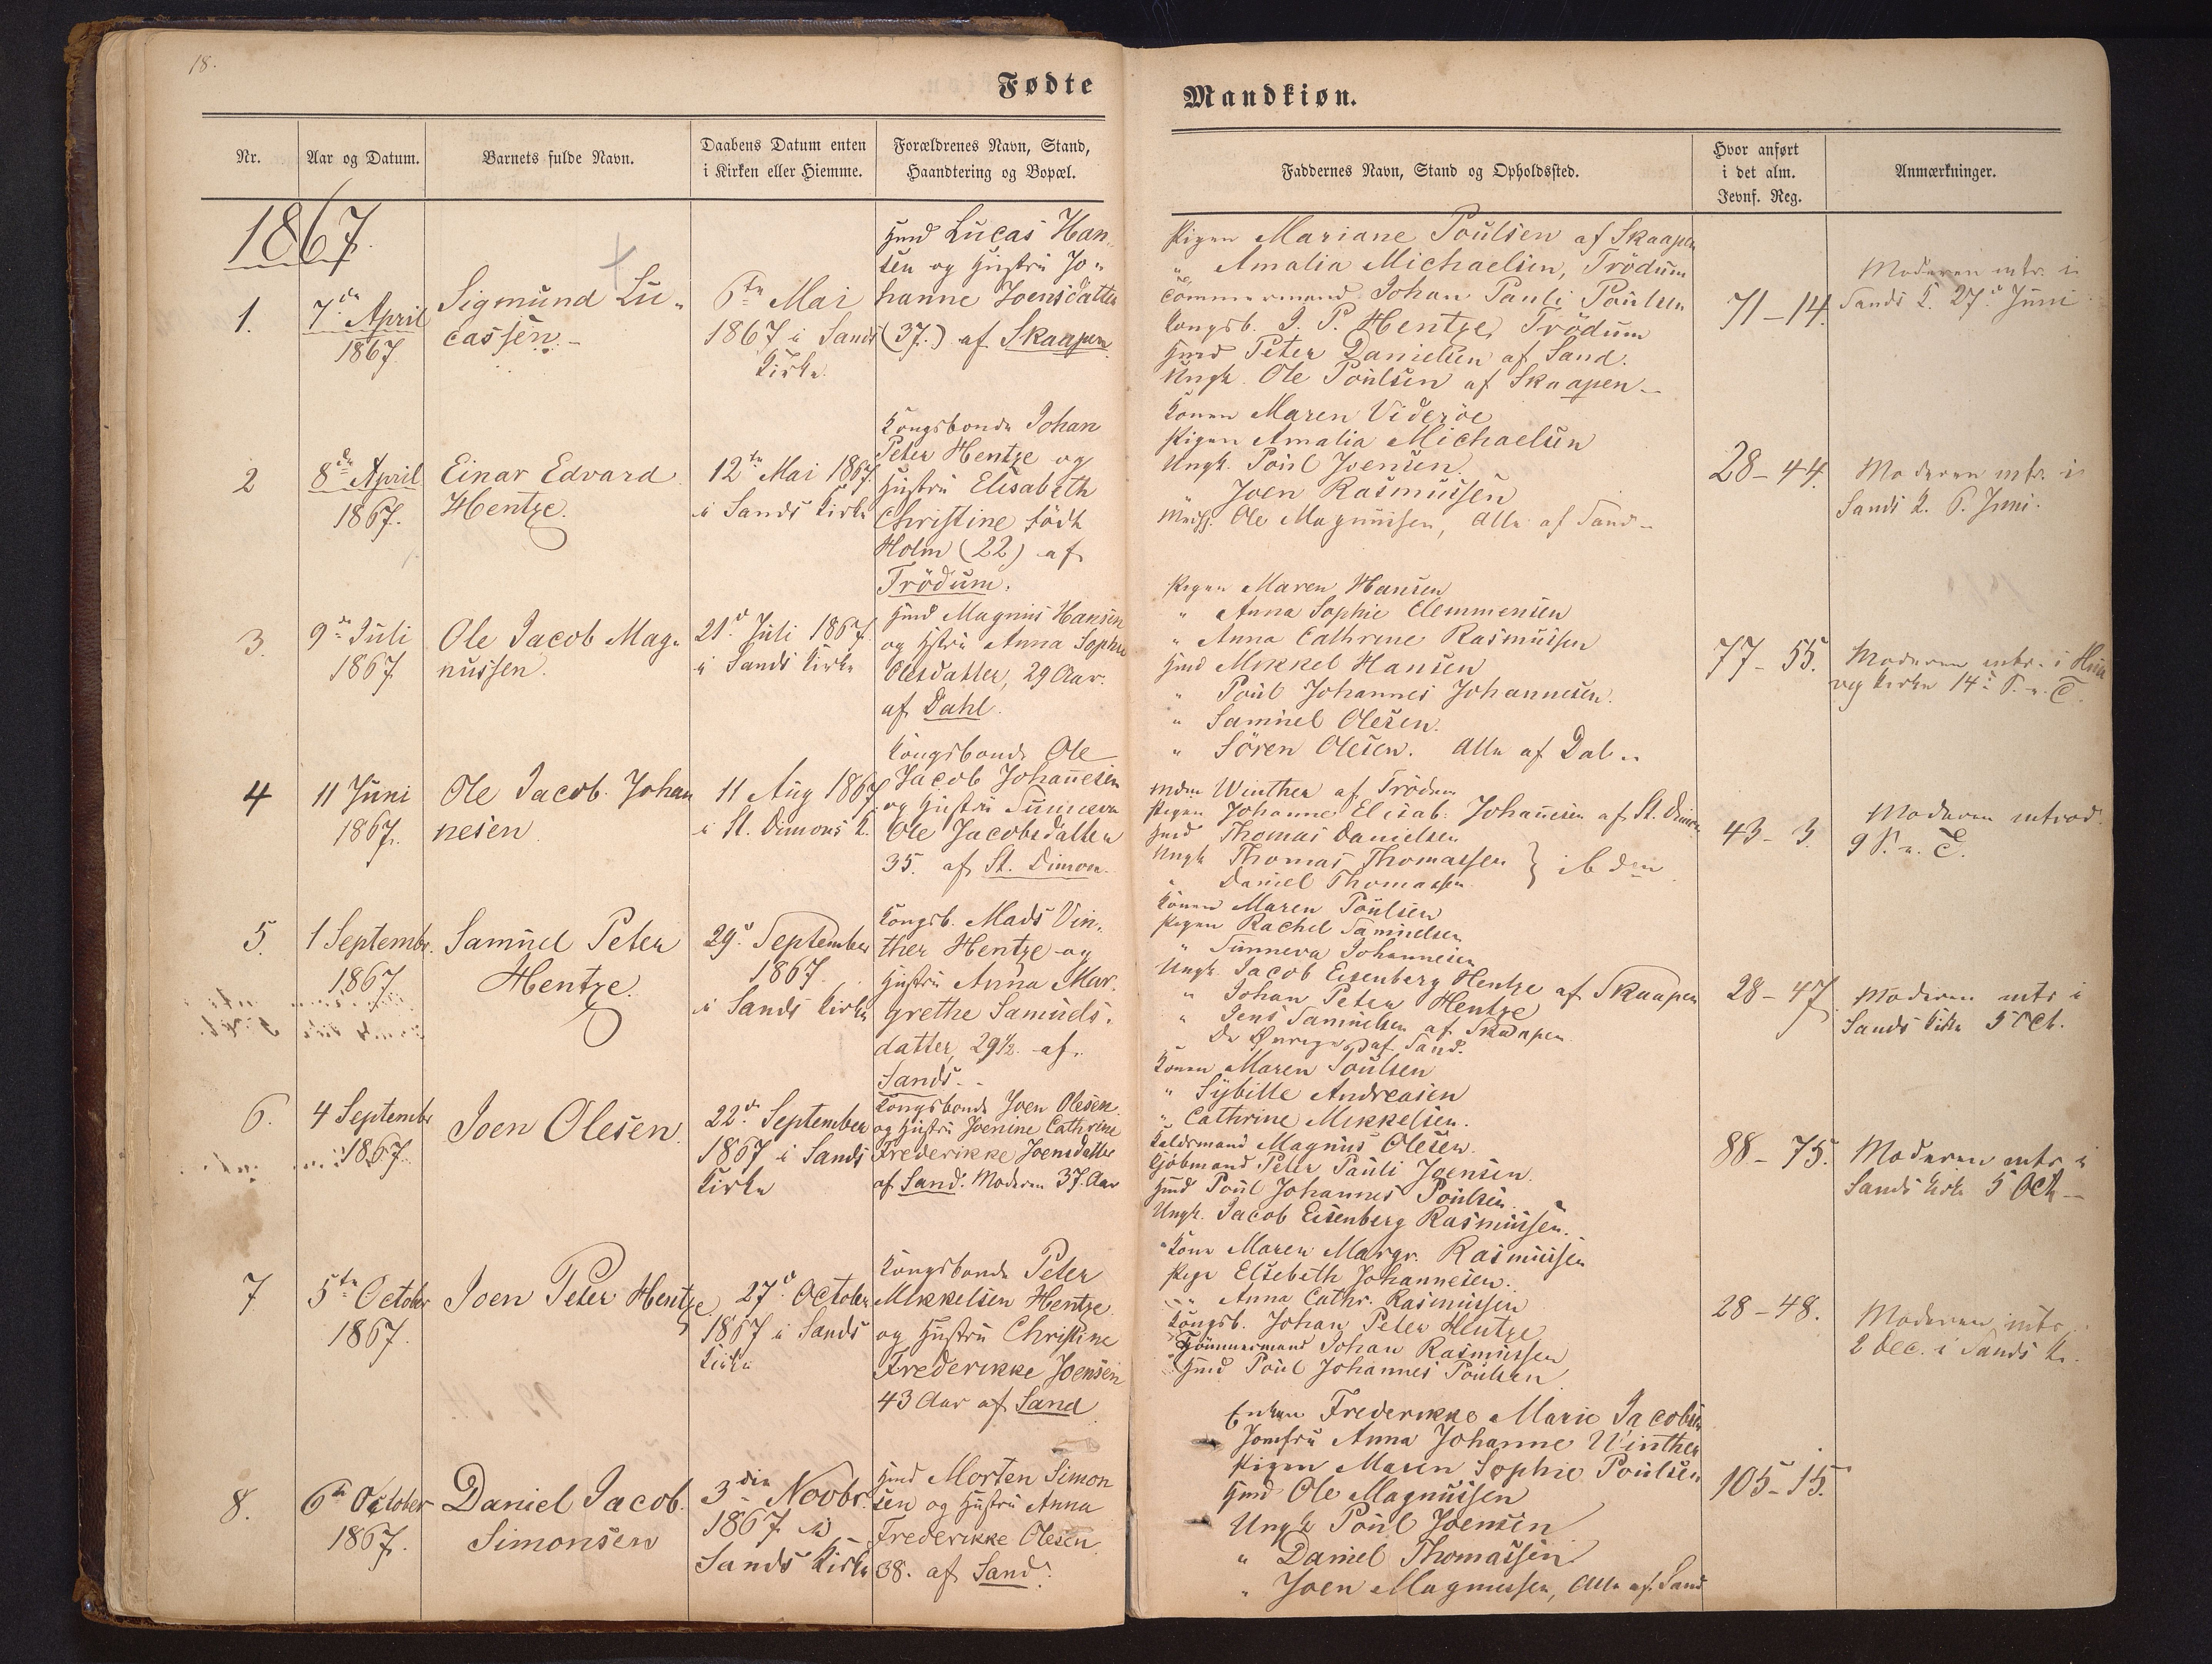 18.
Fødte
Mandkiøn.
Nr.
Aar og Datum.
Barnets fulde Navn.
Daabens Datum enten
i Kirken eller Hiemme.
Forældrenes Navn, Stand,
Haandtering og Bopæl.
Faddernes Navn, Stand og Opholdssted.
Hvor anført
i det alm.
Jevnf. Reg.
Anmærkninger.
1867.
1.
7de April
1867.
Sigmund Lu-
cassen.
6te Mai
1867 i Sands
Kirke.
Hmd Lucas Han-
sen og Hustru Jo-
hanne Joensdatter
(37.) af Skaapen
Pigen Mariane Poulsen af Skaapen
" Amalia Michaelsen, Trödum
Tömmermand Johan Pauli Poulsen
Kongsb. J. P. Hentze, Trödum
Hmd Peter Danielsen af Sand.
Ungk. Ole Poulsen af Skaapen.
71-14.
Moderen intr. i
Sands K. 27de Juni
2
8de April
1867.
Einar Edvard
Hentze.
12te Mai 1867.
i Sands Kirke
Kongsbonde Johan
Peter Hentze og
Hustru Elisabeth
Christine född
Holm (22) af
Trödum.
Konen Maren Videröe
Pigen Amalia Michaelsen
Ungk. Poul Joensen.
" Joen Rasmussen
Ole Magnussen, Alle af Sand
28-44.
Moderen intr. i
Sands K. 6. Juni.
3.
9de Juli
1867
Ole Jacob Mag-
nussen.
21de Juli 1867.
i Sands Kirke
Hmd Magnus Hansen
og Hstru Anna Sophie
Olesdatter, 29 Aar.
af Dahl.
Pigen Maren Hansen
" Anna Sophie Clemmensen
" Anna Cathrine Rasmussen
Hmd Mikkel Hansen
" Poul Johannes Johannesen.
" Samuel Olesen.
" Sören Olesen. Alle af Dal..
77-55.
Moderen intr. i Husa
vig Kirke 14de S. e. T.
4
11 Juni
1867.
Ole Jacob Johan
nesen
11 Aug 1867.
i St. Dimons K.
Kongsbonde Ole
Jacob Johannesen
og Hustru Sunneva
Ole Jacobsdatter
35. af St. Dimon.
Mdm Winther af Trödum
Pigen Johanne Elisab. Johannesen af St. Dimon
Hmd Thomas Danielsen
Ungk Thomas Thomassen
" Daniel Thomassen
} ibden
43-3.
Moderen introd.
9 S. e. T.
5.
1 Septembr.
1867
Samuel Peter
Hentze.
29de September
1867
i Sands Kirke
Kongsb. Mads Vin-
ther Hentze og
Hustru Anna Mar-
grethe Samuels-
datter, 29½ af
Sands.
Konen Maren Poulsen
Pigen Rachel Samuelsen
" Sunneva Johannesen
Ungk. Jacob Eisenberg Hentze af Skaapen
" Johan Peter Hentze
" Jens Samuelsen af Skaapen
De Øvrige af Sand.
28-47.
Moderen intr i
Sands Kirke 5 Oct.
6.
4 Septembr
1867.
Joen Olesen.
22de September
1867 i Sands
Kirke
Kongsbonde Joen Olesen
og Hustru Joenine Cathrine
Frederikke Joensdatter
af Sand. Moderen 37. Aar
Konen Maren Poulsen
" Sybille Andreasen
" Cathrine Mikkelsen.
Magnus Olesen.
Kjöbmand Peter Pauli Joensen.
Hmd Poul Johannes Poulsen
Ungk. Jacob Eisenberg Rasmussen.
88-75.
Moderen intr i
Sands Kirke 5 Oct
7
5te October
1867.
Joen Peter Hentze
27de October
1867 i Sands
Kirke
Kongsbonde Peter
Mikkelsen Hentze
og Hustru Christine
Frederikke Joensen
43 Aar af Sand
Kone Maren Margr. Rasmussen
Pige Elsebeth Johannesen.
" Anna Cathr. Rasmussen
Kongsb. Johan Peter Hentze
Tömmermand Johan Rasmussen
Hmd Poul Johannes Poulsen
28-48.
Moderen intr
2 Dec. i Sands K.
8.
6te October
1867.
Daniel Jacob
Simonsen
3die Novbr.
1867 i
Sands Kirke
Hmd Morten Simon
sen og Hustru Anna
Frederikke Olesen
38. af Sand.
Enken Frederikke Marie Jacobsen
Jomfru Anna Johanne Winther
Pigen Maren Sophie Poulsen
Hmd Ole Magnussen
Ungk Poul Joensen
" Daniel Thomassen
" Joen Magnussen, Alle af Sand
105-15.